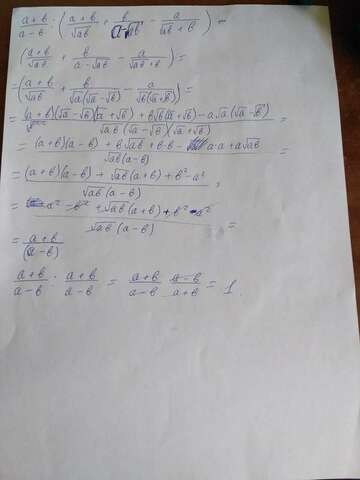 a+b/a-b : (a+b/√ab + b/a-√ab - a/√ab+b) =
(a+b/√ab + b/a-√ab - a/√ab+b) =
= (a+b/√ab + b/√a(√a-√b) - a/√b(√a+√b)) =
= (a+b)(√a-√b)(√a+√b) + b√b(√a+√b) - a√a(√a-√b)/√ab(√a-√b)(√a+√b) =
= (a+b)(a-b) + b√ab + b·b - a·a + a√ab/√ab(a-b) =
= (a+b)(a-b) + √ab(a+b) + b²-a²/√ab(a-b) =
= a²-b² + √ab(a+b) + b²-a²/√ab(a-b) =
= a+b/(a-b)
a+b/a-b : a+b/a-b = a+b/a-b · a-b/a+b = 1.